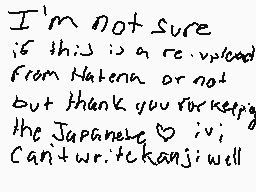 I'm not sure
if this is a re-upload
From Hatena or not
but thank you for keeping
the Japanese ♡ ;v;
Can't write kanji well